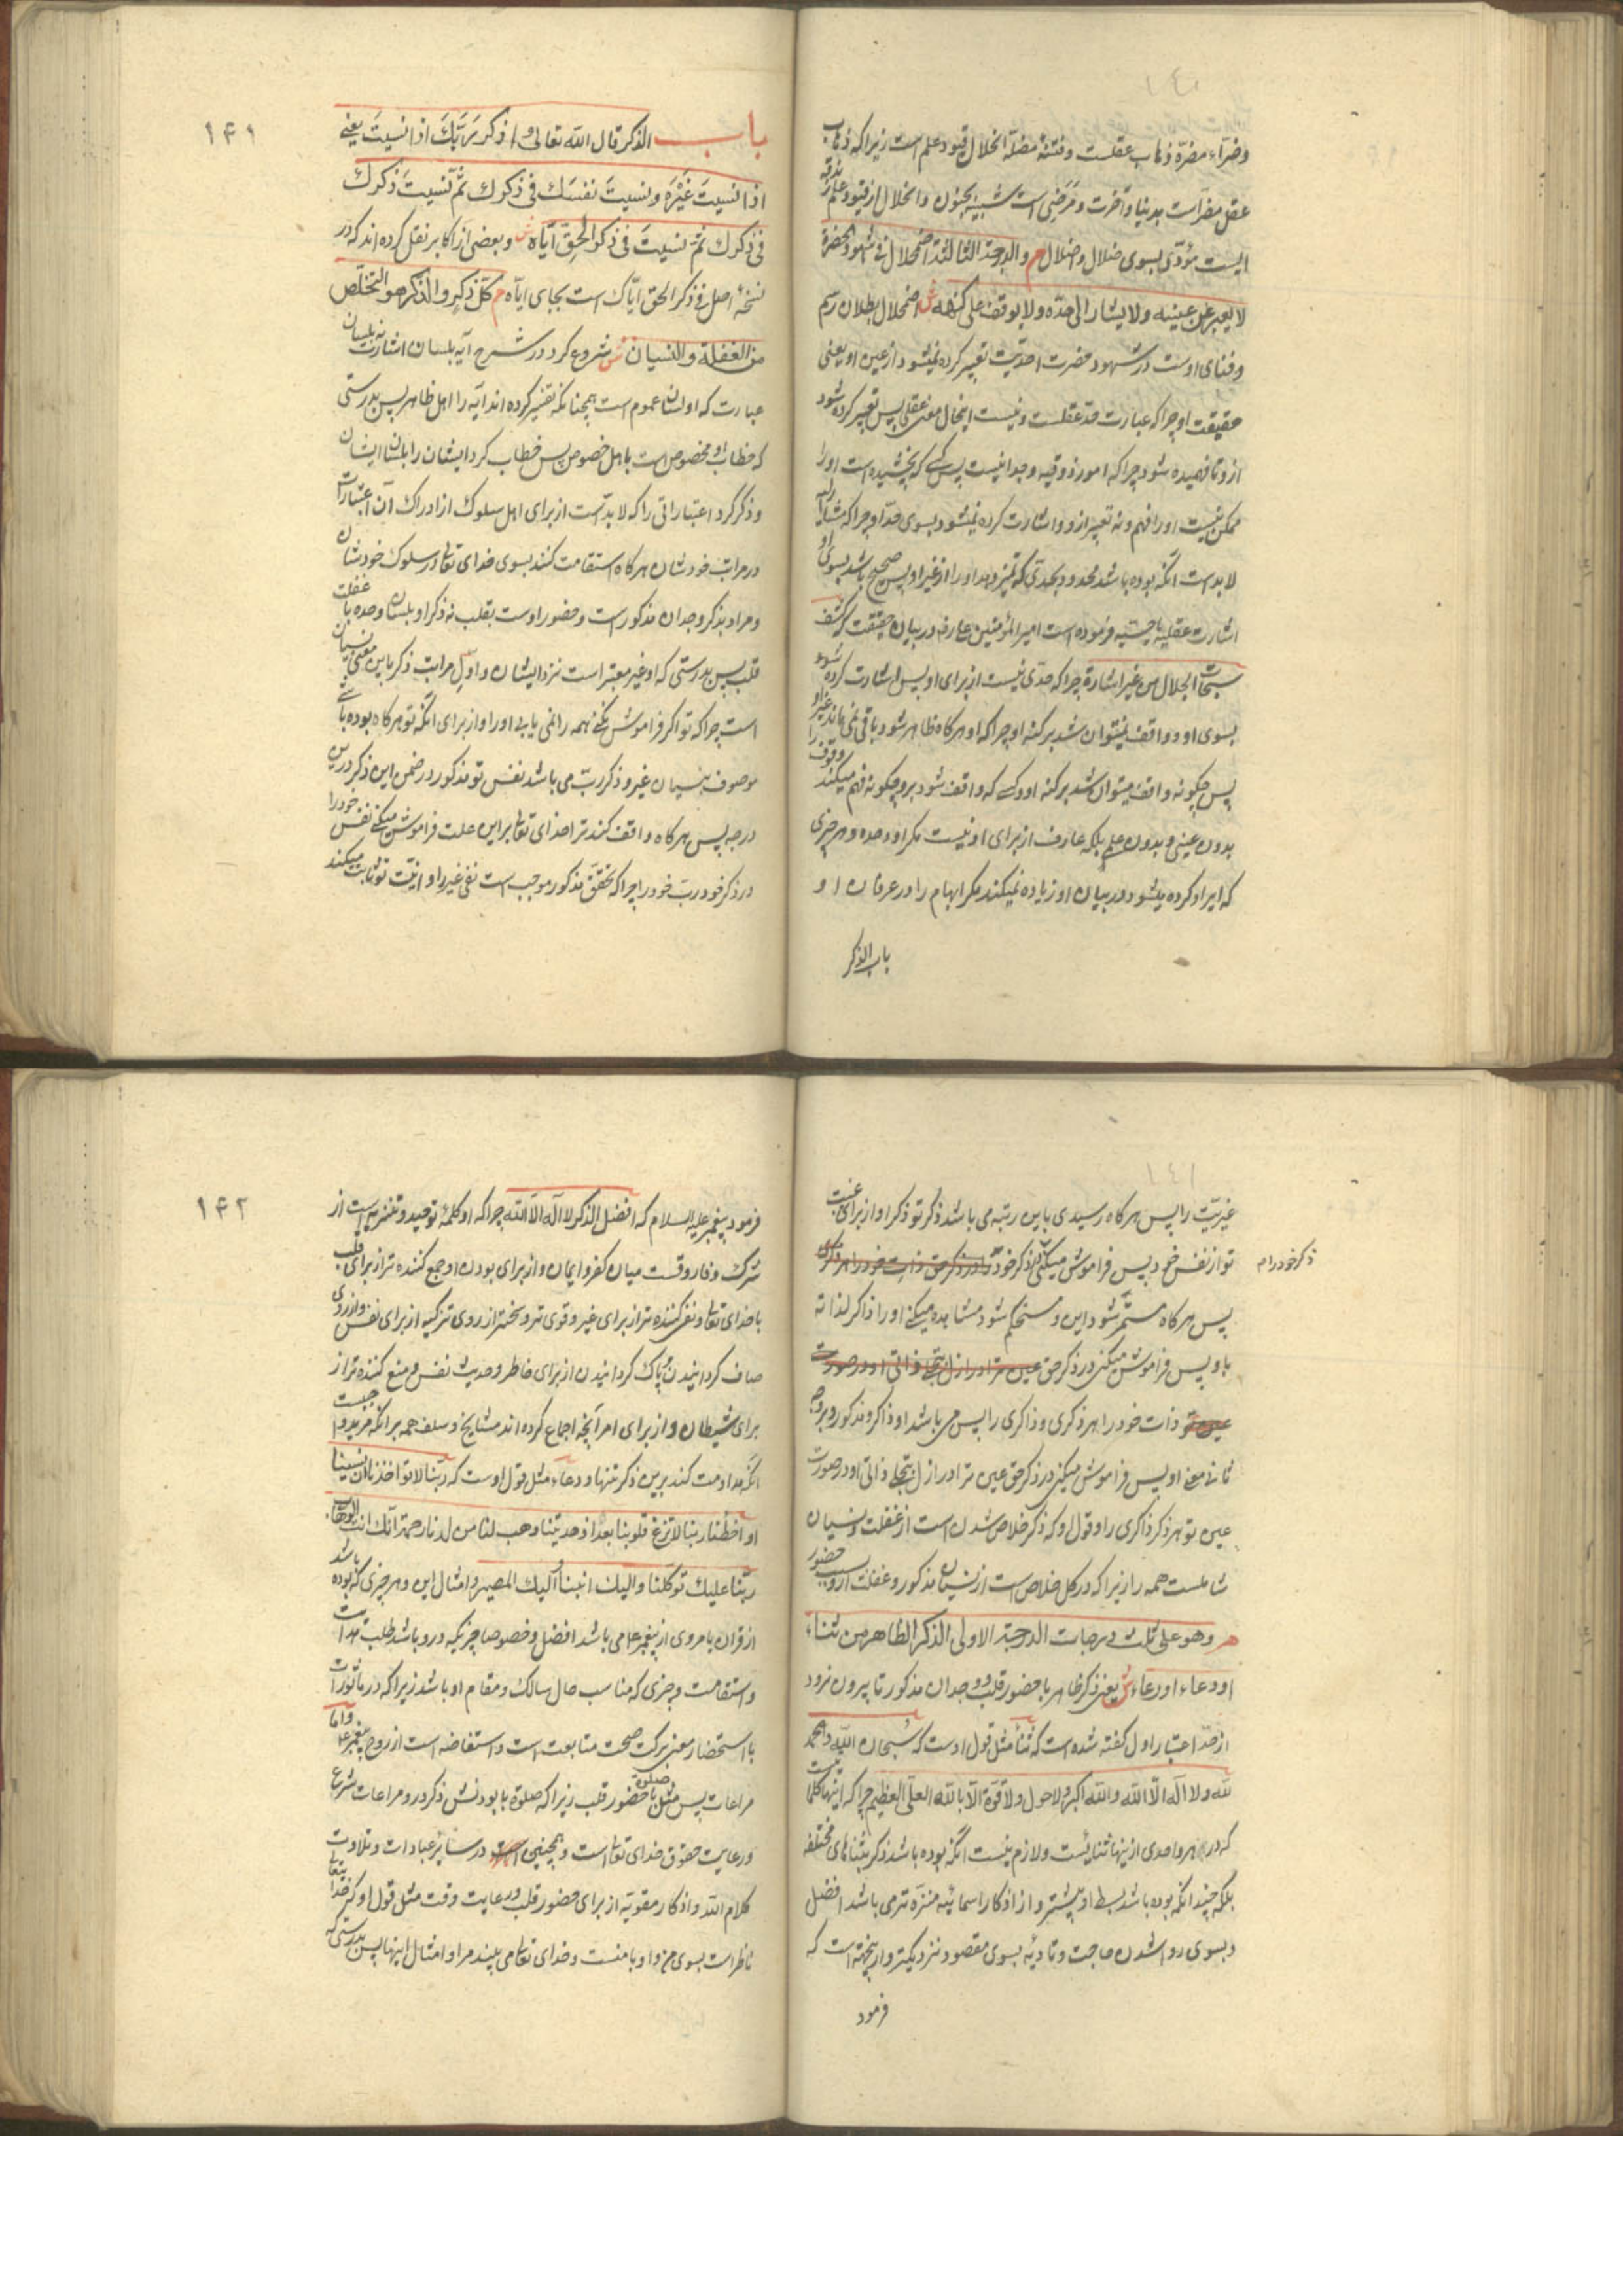 وضرّاء مضرّه ذهاب عقلست وفتنهٔ مضلّه انحلال قیود علم است زیرا که ذهاب
عقل مضر است بدنیا و آخرت و مرضی است شبیه بجنون و انحلال از قیود علم
ایست مؤدّی بسوی ضلال و اضلال م والدرجة الثالثة اضمحلال فی شهود الحضرة
لا یعبر عن عینه ولا یشار الی حدّه ولا یوقف علی کنهه ش اضمحلال بطلان رسم
و فنای اوست در شهود حضرت احدیّت تعبیر کرده نمیشود از عین او یعنی
حقیقت او چرا که عبارت حدّ عقلست و نیست اینحال معنی عقلی پس تعبیر کرده شود
ازو تا فهمیده شود چرا که امور ذوقیه وجدانیست پس کسی که نچشیده است او را
ممکن نیست او را فهم و نه تعبیر ازو و اشارت کرده نمیشود بسوی حدّ او چرا که مشار الیه
لابدست آنکه بوده باشد محدود بحدّی که تمیز دهد او را از غیر او پس صحیح باشد بسوی او
اشارت عقلیه یا حسّیه فرموده است امیرالمؤمنین علیه در بیان حقیقت که کشف
سبحات الجلال من غیر اشارة چرا که حدّی نیست از برای او پس اشارت کرده شود
بسوی او و واقف نمیتوان شد بر کنه او چرا که او هر کاه ظاهر شود باقی نمی ماند غیر او
پس چکونه واقف میتوان شد بر کنه او و کسی که واقف شود برو چکونه فهم میکند وقوف را
بدون عینی و بدون علم بلکه عارف از برای او نیست مکر او وحده و هر چیزی
که ایراد کرده میشود در بیان او زیاده نمیکند مکر ابهام را در عرفان او
باب الذکر
۱۴۱
باب الذکر قال الله تعالی واذکر رَبَّكَ اذا نسیتَ یعنی
اذا نسیتَ غَیْرَه ونسیتَ نفسَك فی ذکرك ثمّ نسیتَ ذکرك
فی ذکرك ثمّ نسیتَ فی ذکر الحقّ ایّاه ش و بعضی از اکابر نقل کرده اند که در
نسخهٔ اصل فی ذکر الحق ایّاك است بجای ایّاه م کلّ ذکرٍ والذکر هو التخلّص
من الغفلة والنسیان ش شروع کرد در شرح آیه بلسان اشارت نه بلسان
عبارت که او لسان عموم است همچنانکه تفسیر کرده اند آیه را اهل ظاهر پس بدرستی
که خطاب او مخصوص است باهل خصوص پس خطاب کرد ایشان را بلسان ایشان
و ذکر کرد اعتباراتی را که لابدّ است از برای اهل سلوك از ادراك آن اعتبارات
در مراتب خودشان هر کاه استقامت کنند بسوی خدای تعالی در سلوك خودشان
و مراد بذکر وجدان مذکور است و حضور اوست بقلب نه ذکر او بلسان وحده با غفلت
قلب پس بدرستی که او غیر معتبر است نزد ایشان و اول مراتب ذکر باین معنی نسیان
است چرا که تو اکر فراموش نکنی همه را نمی یابی او را و از برای آنکه تو هر کاه بوده باشی
موصوف بنسیان غیر و ذکر ربّ می باشد نفس تو مذکور در ضمن این ذکر در این
درجه پس هر کاه واقف کند ترا خدای تعالی بر این علت فراموش میکنی نفس خود را
در ذکر خود ربّ خود را چرا که تحقق مذکور موجب است نفی غیر را و انیّت تو ثابت میکند
۱۴۱
غیریّت را پس هر کاه رسیدی باین رتبه می باشد ذکر تو ذکر او از برای غیبت
تو از نفس خود پس فراموش میکنی در ذکر خود
ذکر خود را م
پس هر کاه مستمرّ شود این و مستحکم شود مشاهده میکنی او را ذاکر لذاته
باو پس فراموش میکنی در ذکر حق
ذات خود را بهر ذکری و ذاکری را پس می باشد او ذاکر و مذکور و بر وجه
ثانی معنی او پس فراموش میکنی در ذکر حق عین ترا در ازل بتجلی ذاتی او در صورت
عین تو هر ذکر ذاکری را و قول او که ذکر خلاص شدن است از غفلت و نسیان
شاملست همه را زیرا که در کل خلاص است از نسیان مذکور و غفلت ازو بسبب حضور
م وهو علی ثلث درجات الدرجة الاولی الذکر الظاهر من ثناء
او دعاء او رعاء ش یعنی ذکر ظاهر با حضور قلب و وجدان مذکور تا بیرون نرود
از حدّ اعتبار اول کفته شده است که ثنا مثل قول اوست که سبحان الله والحمد
لله ولا اله الا الله والله اکبر ولا حول ولا قوّة الا بالله العلیّ العظیم چرا که اینها کلماتیست
که در هر واحدی از اینها ثنائیست و لازم نیست آنکه بوده باشد ذکر بثناهای مختلفه
بلکه چندانکه بوده باشد بسط او بیشتر و از اذکار اسمائیه منزّه تر می باشد افضل
و بسوی روا شدن حاجت و تأدیه بسوی مقصود نزدیکتر و از اینجهة است که
فرمود
۱۴۲
فرمود پیغمبر علیه السلام که افضل الذکر لا اله الا الله چرا که او کلمهٔ توحید و تنزیه است از
شرك و فاروقست میان کفر و ایمان و از برای بودن او جمع کننده تر از برای قلب
با خدای تعالی و نفی کننده تر از برای غیر و قوی تر و سخت تر از روی تزکیه از برای نفس و از روی
صاف کردانیدن و پاك کردانیدن از برای خاطر و حدیث نفس و منع کننده تر از
برای شیطان و از برای امر آنچه اجماع کرده اند مشایخ و سلف همه بر آنکه مرید واجبست
آنکه مداومت کند برین ذکر تنها و دعاء مثل قول اوست که ربّنا لا تواخذنا ان نسینا
او اخطأنا ربنا لا تزغ قلوبنا بعد اذ هدیتنا وهب لنا من لدنك رحمة انك انت الوهاب
ربّنا علیك توکّلنا والیك انبنا والیك المصیر و امثال این و هر چیزی که بوده باشد
از قران یا مروی از پیغمبر ع می باشد افضل و خصوصا چیزیکه درو باشد طلب هدایت
و استقامت و چیزی که مناسب حال سالك و مقام او باشد زیرا که در ماثورات
با استحضار معنی برکت صحت متابعت است و استفاضه است از روح پیغمبر ع واما
مراعات پس مثل صلوة با حضور قلب زیرا که صلوة با بودنش ذکر درو مراعات شرع
و رعایت حقوق خدای تعالی است و همچنین در سایر عبادات و تلاوت
کلام الله و اذکار مقویّه از برای حضور قلب و رعایت وقت مثل قول او که خدای تعالی
ناظر است بسوی من و او با منست و خدای تعالی می بیند مرا و امثال اینها پس بدرستی که